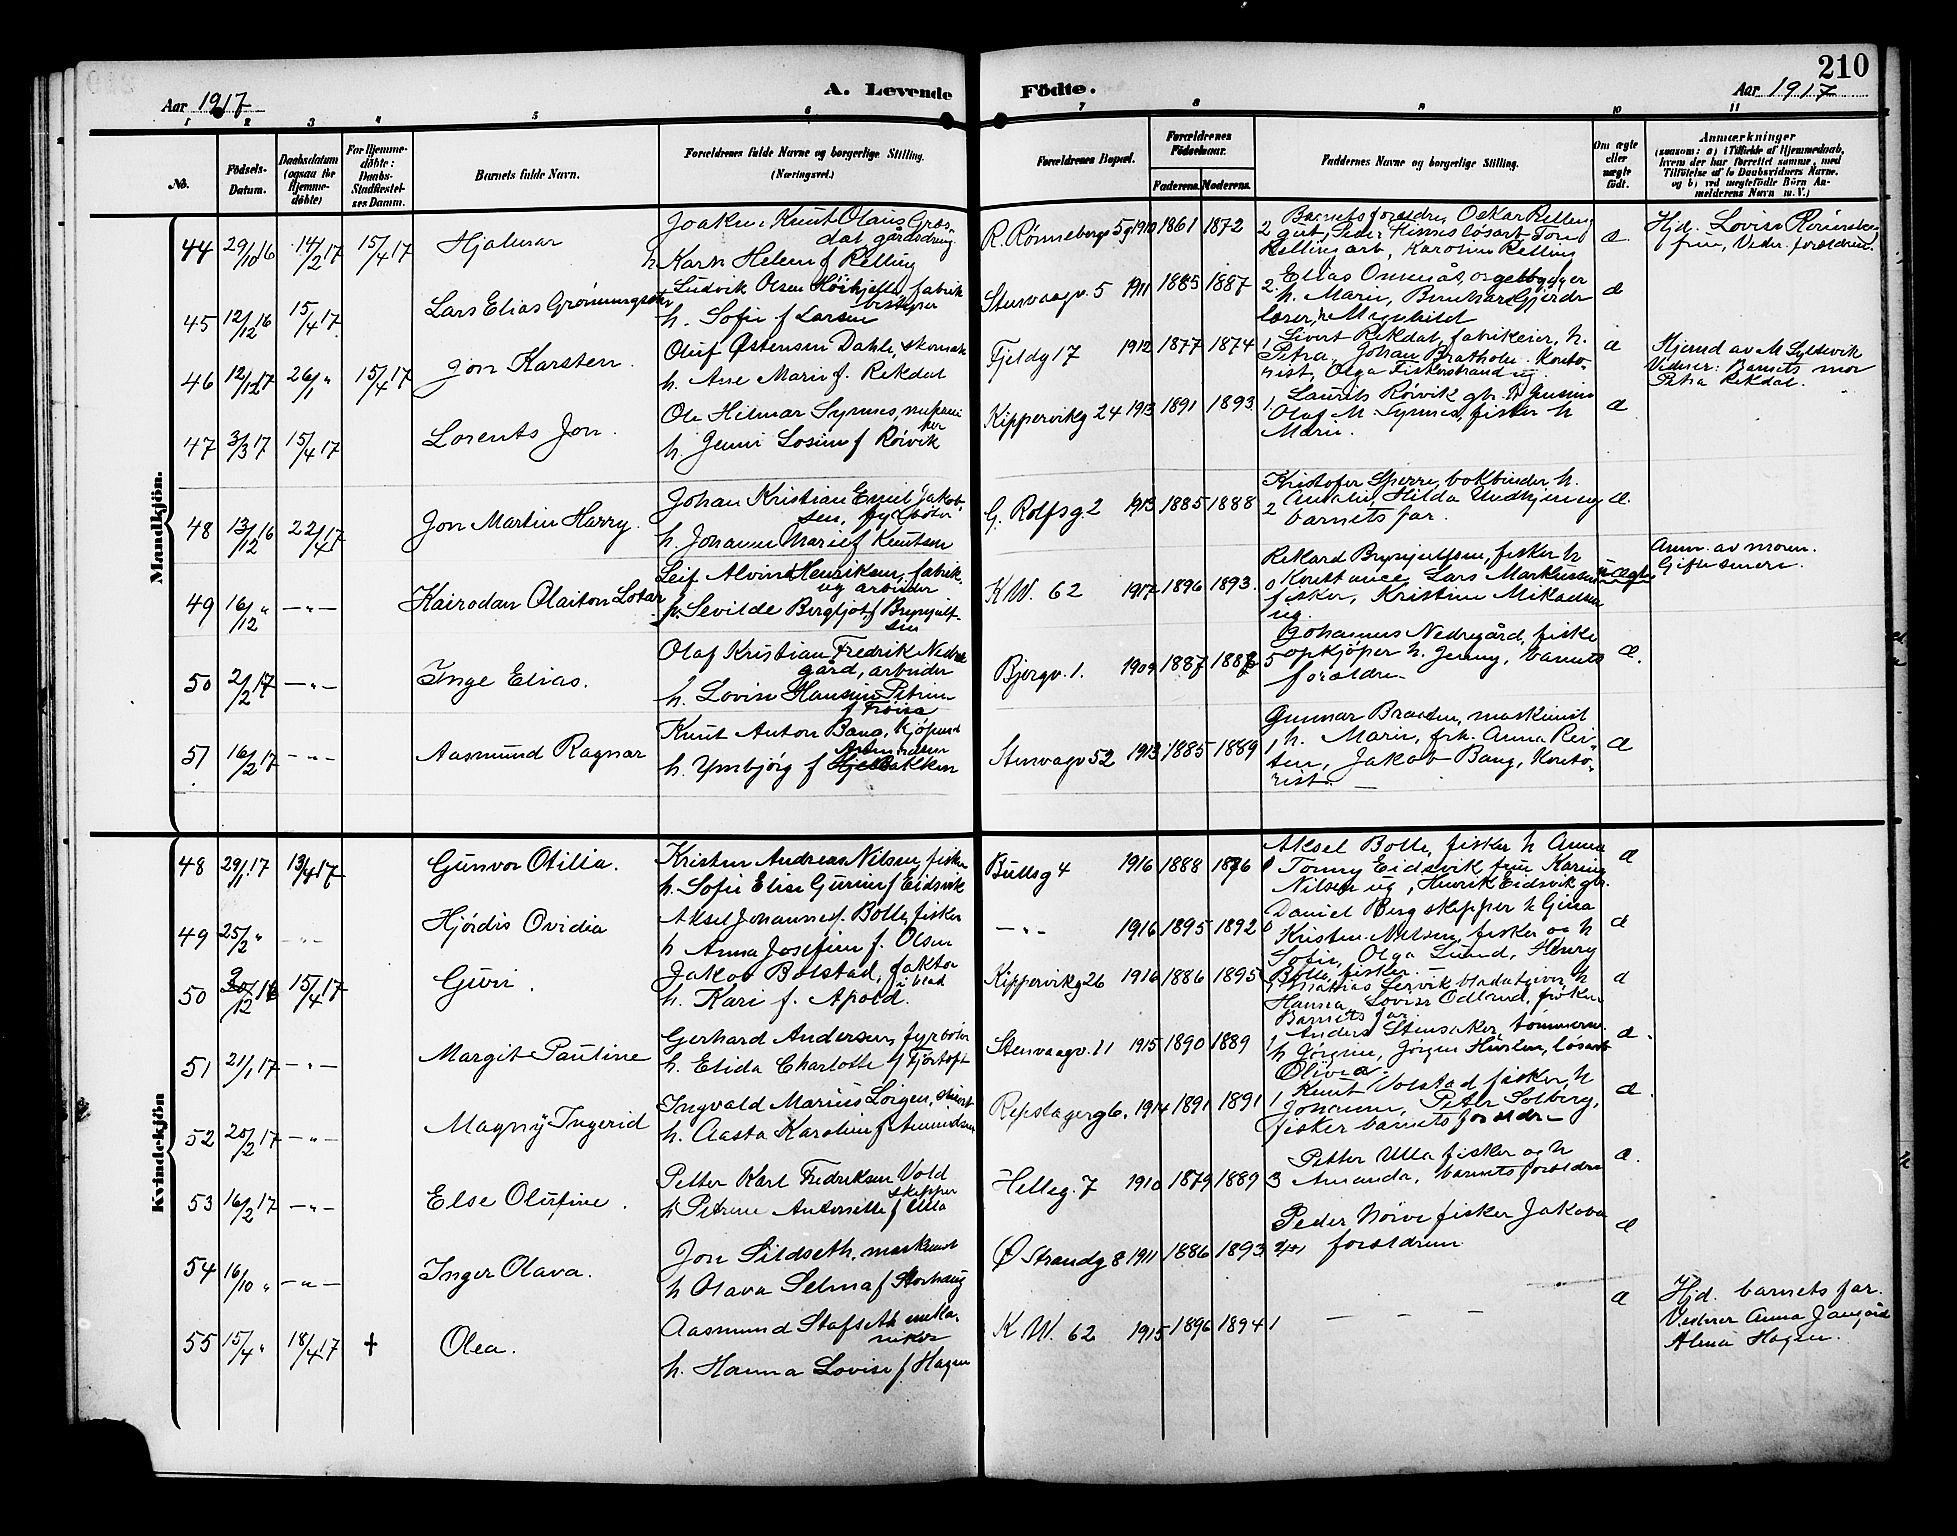 210
Aar 1917
A. Levende Födte.
Aar 1917
1 2 3 4 5 6 7 8 9 10 11
No.
Födsels-Datum.
Daabsdatum (ogsaa for Hjemme-döbte)
For Hjemme-döbte: Daabs-Stadfæstel-ses Datum.
Barnets fulde Navn.
Forældrenes fulde Navne og borgerlige Stilling. (Næringsvei.)
Forældrenes Bopæl.
Forældrenes Födselsaar.
Faderens. Moderens.
Faddernes Navne og borgerlige Stilling.
Om ægte eller uægte födt.
Anmærkninger
(saasom: a) i Tilfælde af Hjemmedaab, hvem der har forrettet samme, med Tilföielse af to Daabsvidners Navne, og b) ved uægtefödte Börn An-melderens Navn m. V.)
Mandkjön.
44 29/10 16 14/2 17 15/4 17 Hjalmar
Knut Olaus Gras-
dal gårdsdreng
h Karn Helene f Relling
R. Rønnebergs 5g 1910 1861 1872
2 Barnets foreldre, Oskar Relling
gut, Peder Hinnes løsarb Tom
Relling arb, Karoline Relling
æ
Hjd. Lovise
frue, Vidn. foreldrene.
45 12/12 16 15/4 17 Lars Elias
Ludvik Olsen fabrik
bestyrer
h. Sofie f Larsen
Stenvaagv. 5 1911 1885 1887
2 Elias orgelbygger
h. Marie, Bernhard Gjerde
lærer, h Magnhild
æ
46 12/12 17 26/1 " 15/4 17 Jon Karsten
Oluf Østensen Dahle, skomak
h. Ane Marie f. Rekdal
Fjeldg 17 1912 1877 1874
1 Sivert Rekdal, fabrikeier, h.
Petra, Johan Bratholm Konto-
rist, Olga Fiskerstrand ug.
æ
Hjemd av M Syltevik
Vidner: Barnets mor
Petra Rekdal.
47 3/3 17 15/4 17 Lorents Jon.
Ole Hilmar Synnes, mekani
ker
h. Jenni Losine f Røivik
Kippervikg 24 1913 1891 1893
1. Laurits Røivik gbr.
Olaf M. Synnes, fisker h
Marie.
æ
48 13/12 16 22/4 17 Jon Martin Harry.
Johan Kristian Emil Jakob-
sen, fyrbøter
h. Johanne Marie f Knutsen
G. Rolfsg. 2 1913 1885 1888
Kristofer Sperre, bokbinder, h.
2 Amalie, Hilda
barnets far.
æ.
49 16/12 " —"— Kairodan Olaiton Lotar
Leif Alvin Henriksen, fabrik
arbeider
p. Sevilde Bergljot f. Brynjulf-
sen
K W. 62 1917 1896 1893.
Rikard Brynjulfsen, fisker h
0 Konstance Lars Markussen
fisker, Kristine Mikalsen
ug.
u ægte
Anm. av moren.
Giftes senere.
50 2/2 17 —"— Inge Elias.
Olaf Kristian Fredrik Nedre
gård, arbeider
h. Lovise Hansine Petrine
f Frøisa
Bjergv. 1. 1909 1887 1886
Johannes Nedregård, fiske
5 opkjøper h. Jenny, barnets
foreldre
æ.
51 16/2 17 —"— Aasmund Ragnar
Knut Anton Bang, kjøpm
h. Ymbjørg f
Stenvaagv 52 1913 1885 1889
Gunnar Braaten, maskinist
1 h. Marie, frk. Anna Rei-
ten, Jakob Bang, Konto-
rist. —
æ
Kvindekjön
48 29/1 17 13/4 17 Gunvor Otilia.
Kristen Andreas Nilsen, fisker
h. Sofie Elise Gurine f Eidsvik
Bullsg 4 1916 1888 1886
Aksel Bolle, fisker h Anna
0 Tomy Eidsvik frue Karine
Nilsen ug, Henrik Eidsvik gbr.
æ
49 25/2 " —"— Hjördis Ovidia
Aksel Johannes Bolle, fisker
h Anna Josefine f. Olsen
—"— 1916 1895 1892
Daniel Berg skipper h Gina
0 Kristen Nilsen, fisker og h
Sofie, Olga Lund, Henry
Bolle, fisker. —
æ
50 20/12 16 15/4 17 Guri.
Jakob Bolstad, faktor
i blad
h. Kari f. Apold.
Kippervikg 26 1916 1886 1895
1 Mattias Lervik bladutgiver, h
Hanna, Lovise Odland, frøken
Barnets far.
æ
51 21/1 17 —"— Margit Pauline
Gerhard Andersen, fyrbøter
h. Elida Charlotte f Fjørtoft
Stenvaagv. 11 1915 1890 1889
1 Anders Stensaker, tømmerm.
h Jørgine, Jørgen løsarb
Olivia.
æ.
52 25/2 17 —"— Magny Ingerid
Ingvald Marius
h. Aasta Karoline f Amundsen
Repslagerg 6. 1914 1891 1891
1 Knut Volstad fisker, h
Johanne, Peter Solberg,
fisker barnets foreldre
æ.
53 16/2 17 —"— Else Olufine.
Petter Karl Fredriksen Vold
skipper
h Petrine Antonette f Ulla
Helleg. 7 1910 1879 1889
Petter Ulla fisker og h
3 Amanda, barnets foreldre
æ.
54 16/10 " —"— Inger Olava.
Jon Sildseth, maskinist
h Olava Selma f Storhaug
Ø Strandg 8 1911 1886 1893
Peder Nørve fisker Jakoba
foreldrene
æ
55 15/4 " 18/4 17 + Olea.
Aasmund Stafseth meka-
niker
h. Hanna Lovise f Hagen
K W. 62 1915 1896 1894 1 — — —
æ
Hjd. barnets far.
Vidner Anna
Alma Hagen.